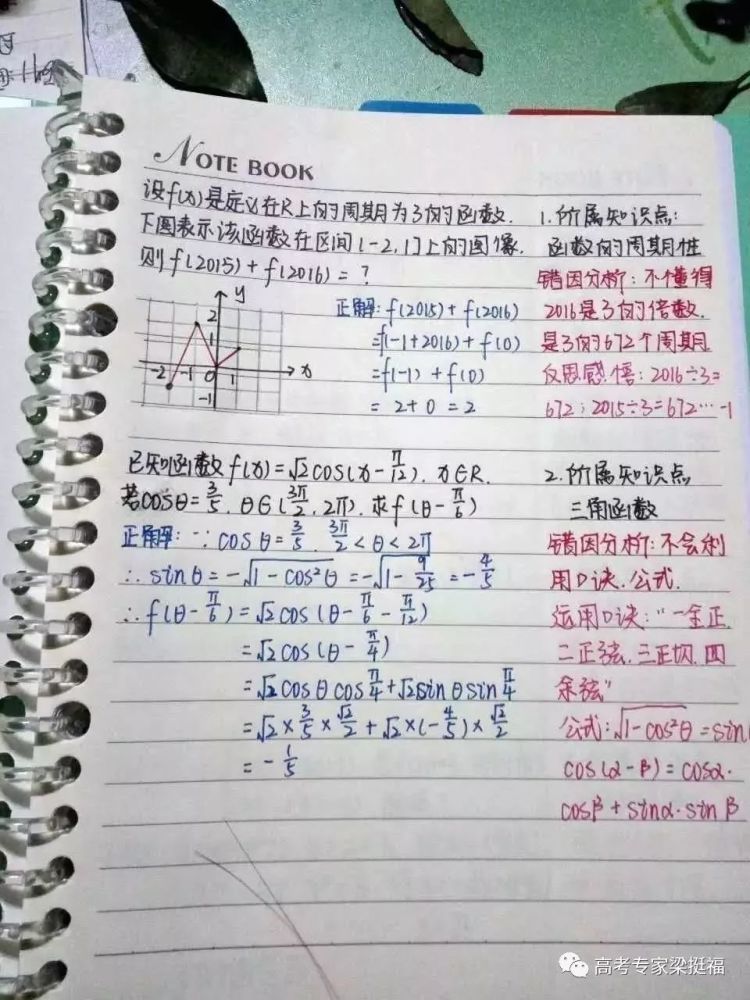 NOTE BOOK
设f(x)是定义在R上的周期为3的函数.
下图表示该函数在区间[-2,1]上的图像.
则f(2015)+f(2016)=?
y
2
1
-2 -1 0 1 x
-1
正解: f(2015)+f(2016)
=f(-1+2016)+f(0)
=f(-1)+f(0)
=2+0=2
1.所属知识点:
函数的周期性
错因分析:不懂得
2016是3的倍数.
是3的672个周期
反思感悟:2016÷3=
672;2015÷3=672…-1
已知函数f(x)=√2cos(x-π/12).x∈R.
若cosθ=3/5.θ∈(3π/2,2π).求f(θ-π/6)
正解:∵cosθ=3/5.3π/2<θ<2π
∴sinθ=-√(1-cos²θ)=-√(1-9/25)=-4/5
∴f(θ-π/6)=√2cos(θ-π/6-π/12)
=√2cos(θ-π/4)
=√2cosθcosπ/4+√2sinθsinπ/4
=√2×3/5×√2/2+√2×(-4/5)×√2/2
=-1/5
2.所属知识点
三角函数
错因分析:不会利
用口诀.公式.
运用口诀:"一全正.
二正弦.三正切.四
余弦"
公式:√(1-cos²θ)=sin
cos(α-β)=cosα·
cosβ+sinα·sinβ
高考专家梁挺福